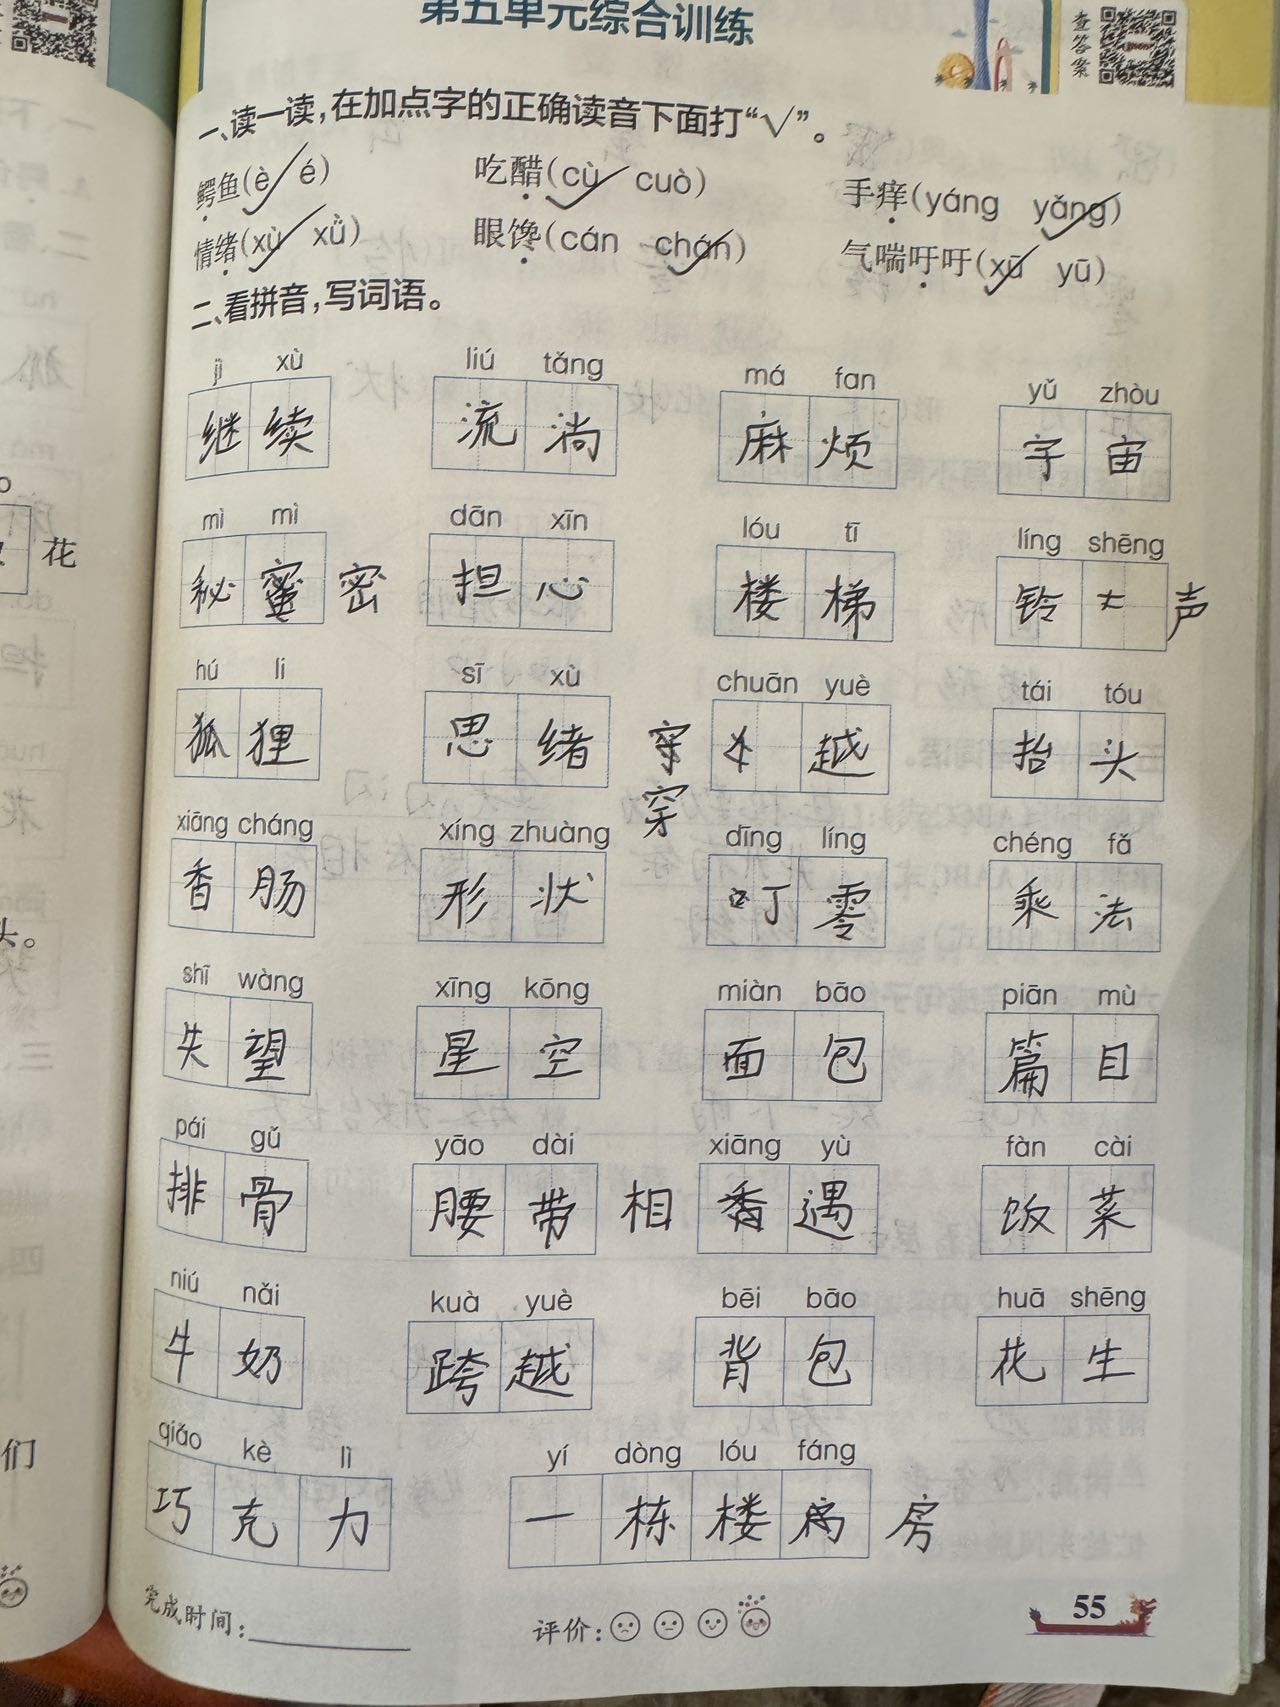 第五单元综合训练
查答案
一、读一读,在加点字的正确读音下面打“√”。
鳄鱼(è√ é) 吃醋(cù√ cuò) 手痒(yáng yǎng√)
情绪(xù√ xǜ) 眼馋(cán chán√) 气喘吁吁(xū√ yū)
二、看拼音,写词语。
jì xù liú tǎng má fan yǔ zhòu
继续 流淌 麻烦 宇宙
mì mì dān xīn lóu tī líng shēng
秘蜜 密 担心 楼梯 铃 声
hú li sī xù chuān yuè tái tóu
狐狸 思绪 穿 越 抬头
穿
xiāng cháng xíng zhuàng dīng líng chéng fǎ
香肠 形状 叮零 乘法
shī wàng xīng kōng miàn bāo piān mù
失望 星空 面包 篇目
pái gǔ yāo dài xiāng yù fàn cài
排骨 腰带 相 香遇 饭菜
niú nǎi kuà yuè bēi bāo huā shēng
牛奶 跨越 背包 花生
qiǎo kè lì yí dòng lóu fáng
巧克力 一栋楼房 房
完成时间:
评价:
55
花
头。
们